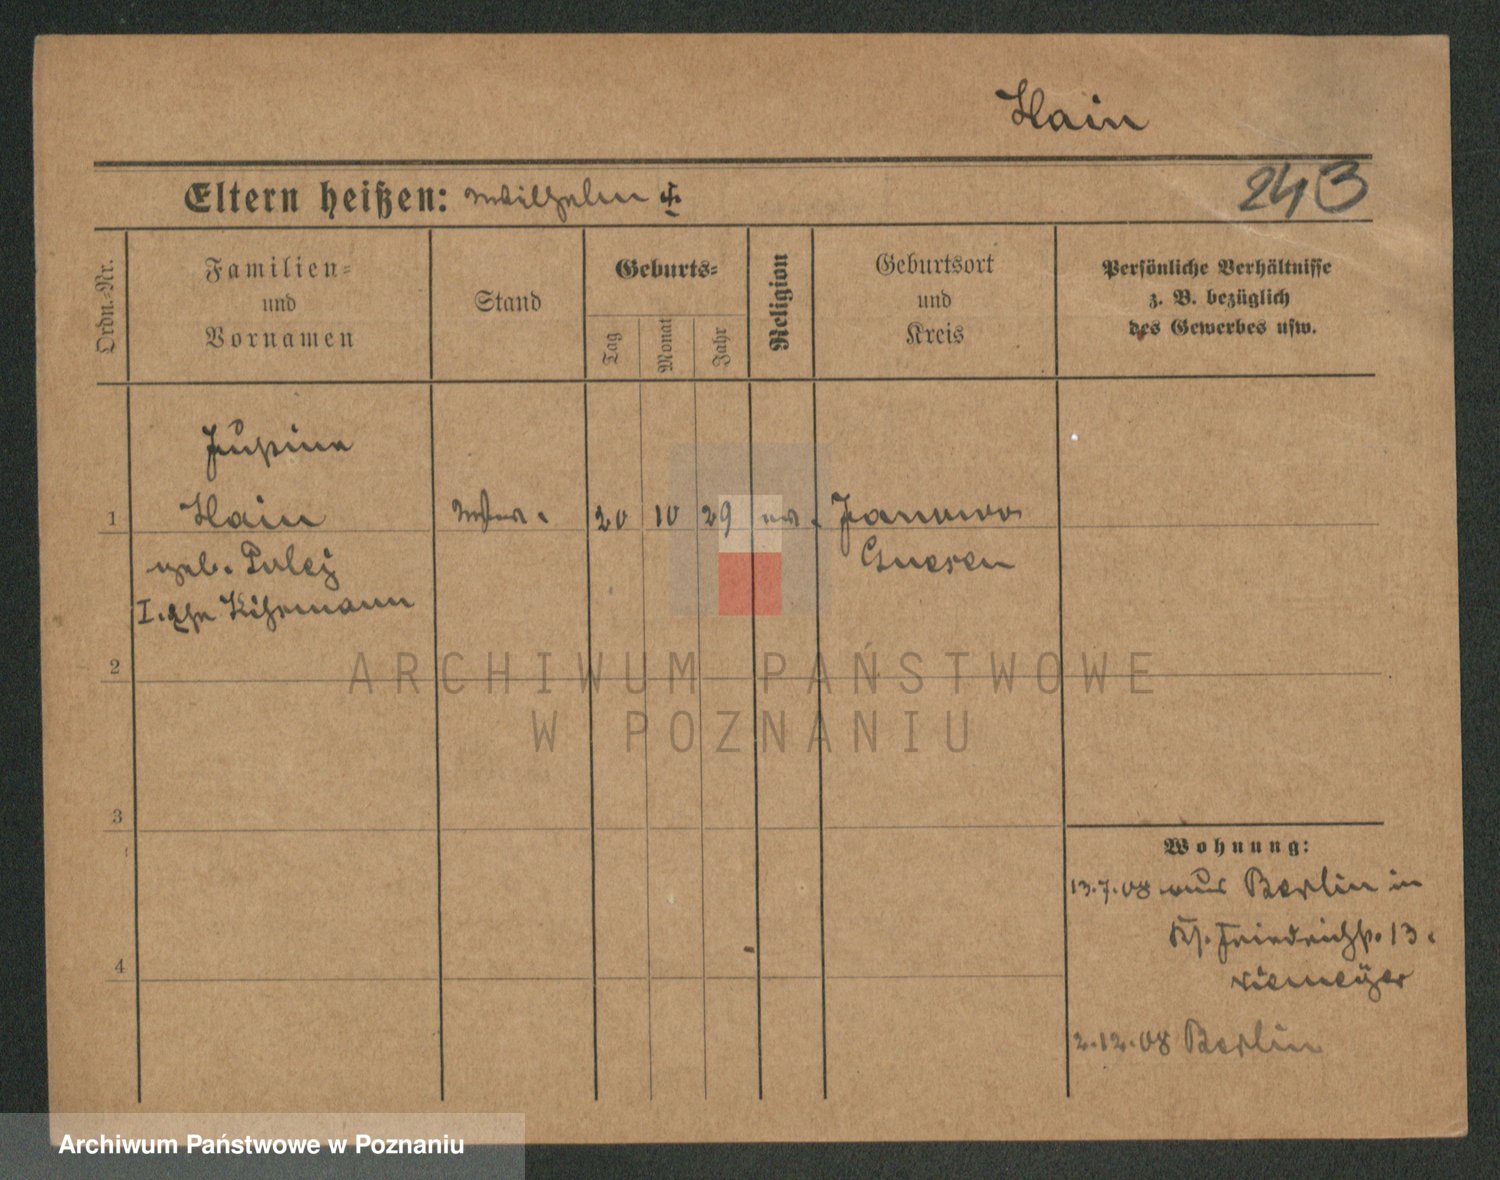 Hain
243
Eltern heißen: Wilhelm
Ordn.-Nr.
Familien-
und
Vornamen
Stand
Geburts-
Tag
Monat
Jahr
Religion
Geburtsort
und
Kreis
Persönliche Verhältnisse
z. B. bezüglich
des Gewerbes usw.
1
Hain
20 10 29
Janowo
geb.
Gnesen
I. Ehe
2
ARCHIWUM PAŃSTWOWE
W POZNANIU
3
Wohnung:
13.7.08 aus Berlin in
Friedrichstr. 13.
Niemeÿer
4
2.12.08 Berlin
Archiwum Państwowe w Poznaniu